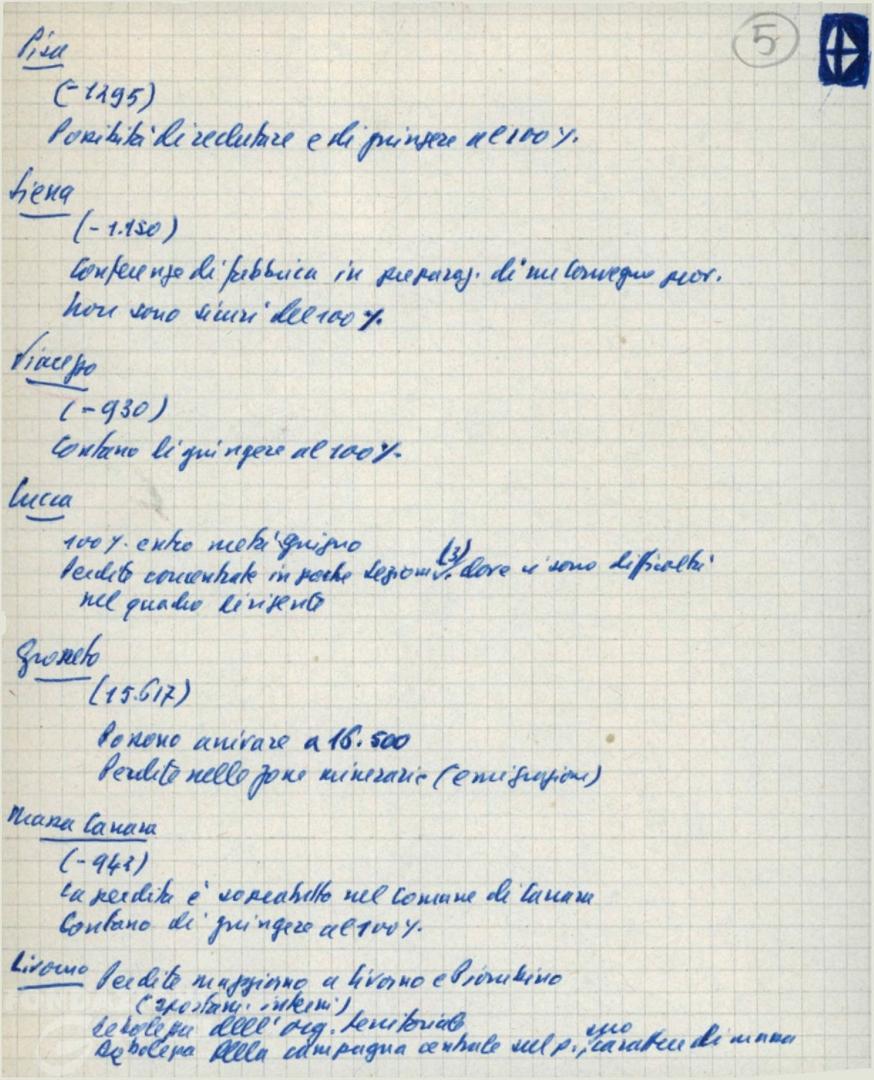 5
Pisa
(-1295)
Possibilità di reclutare e di giungere al 100%.
Siena
(-1.150)
Conferenze di fabbrica in preparaz. di un Convegno prov.
Non sono sicuri del 100%.
Viareggio
(-930)
Contano di giungere al 100%.
Lucca
100% entro metà giugno
Perdite concentrate in poche sezioni (3) dove vi sono difficoltà
nel quadro dirigente
Grosseto
(15.617)
Possono arrivare a 16.500
Perdite nelle zone minerarie (emigrazione)
Massa Carrara
(-943)
La perdita è soprattutto nel Comune di Carrara
Contano di giungere al 100%.
Livorno Perdite maggiorno a Livorno e Piombino
(spostam. interni)
Debolezza dell'org. territoriale
Debolezza della campagna centrale sul p., suo carattere di massa